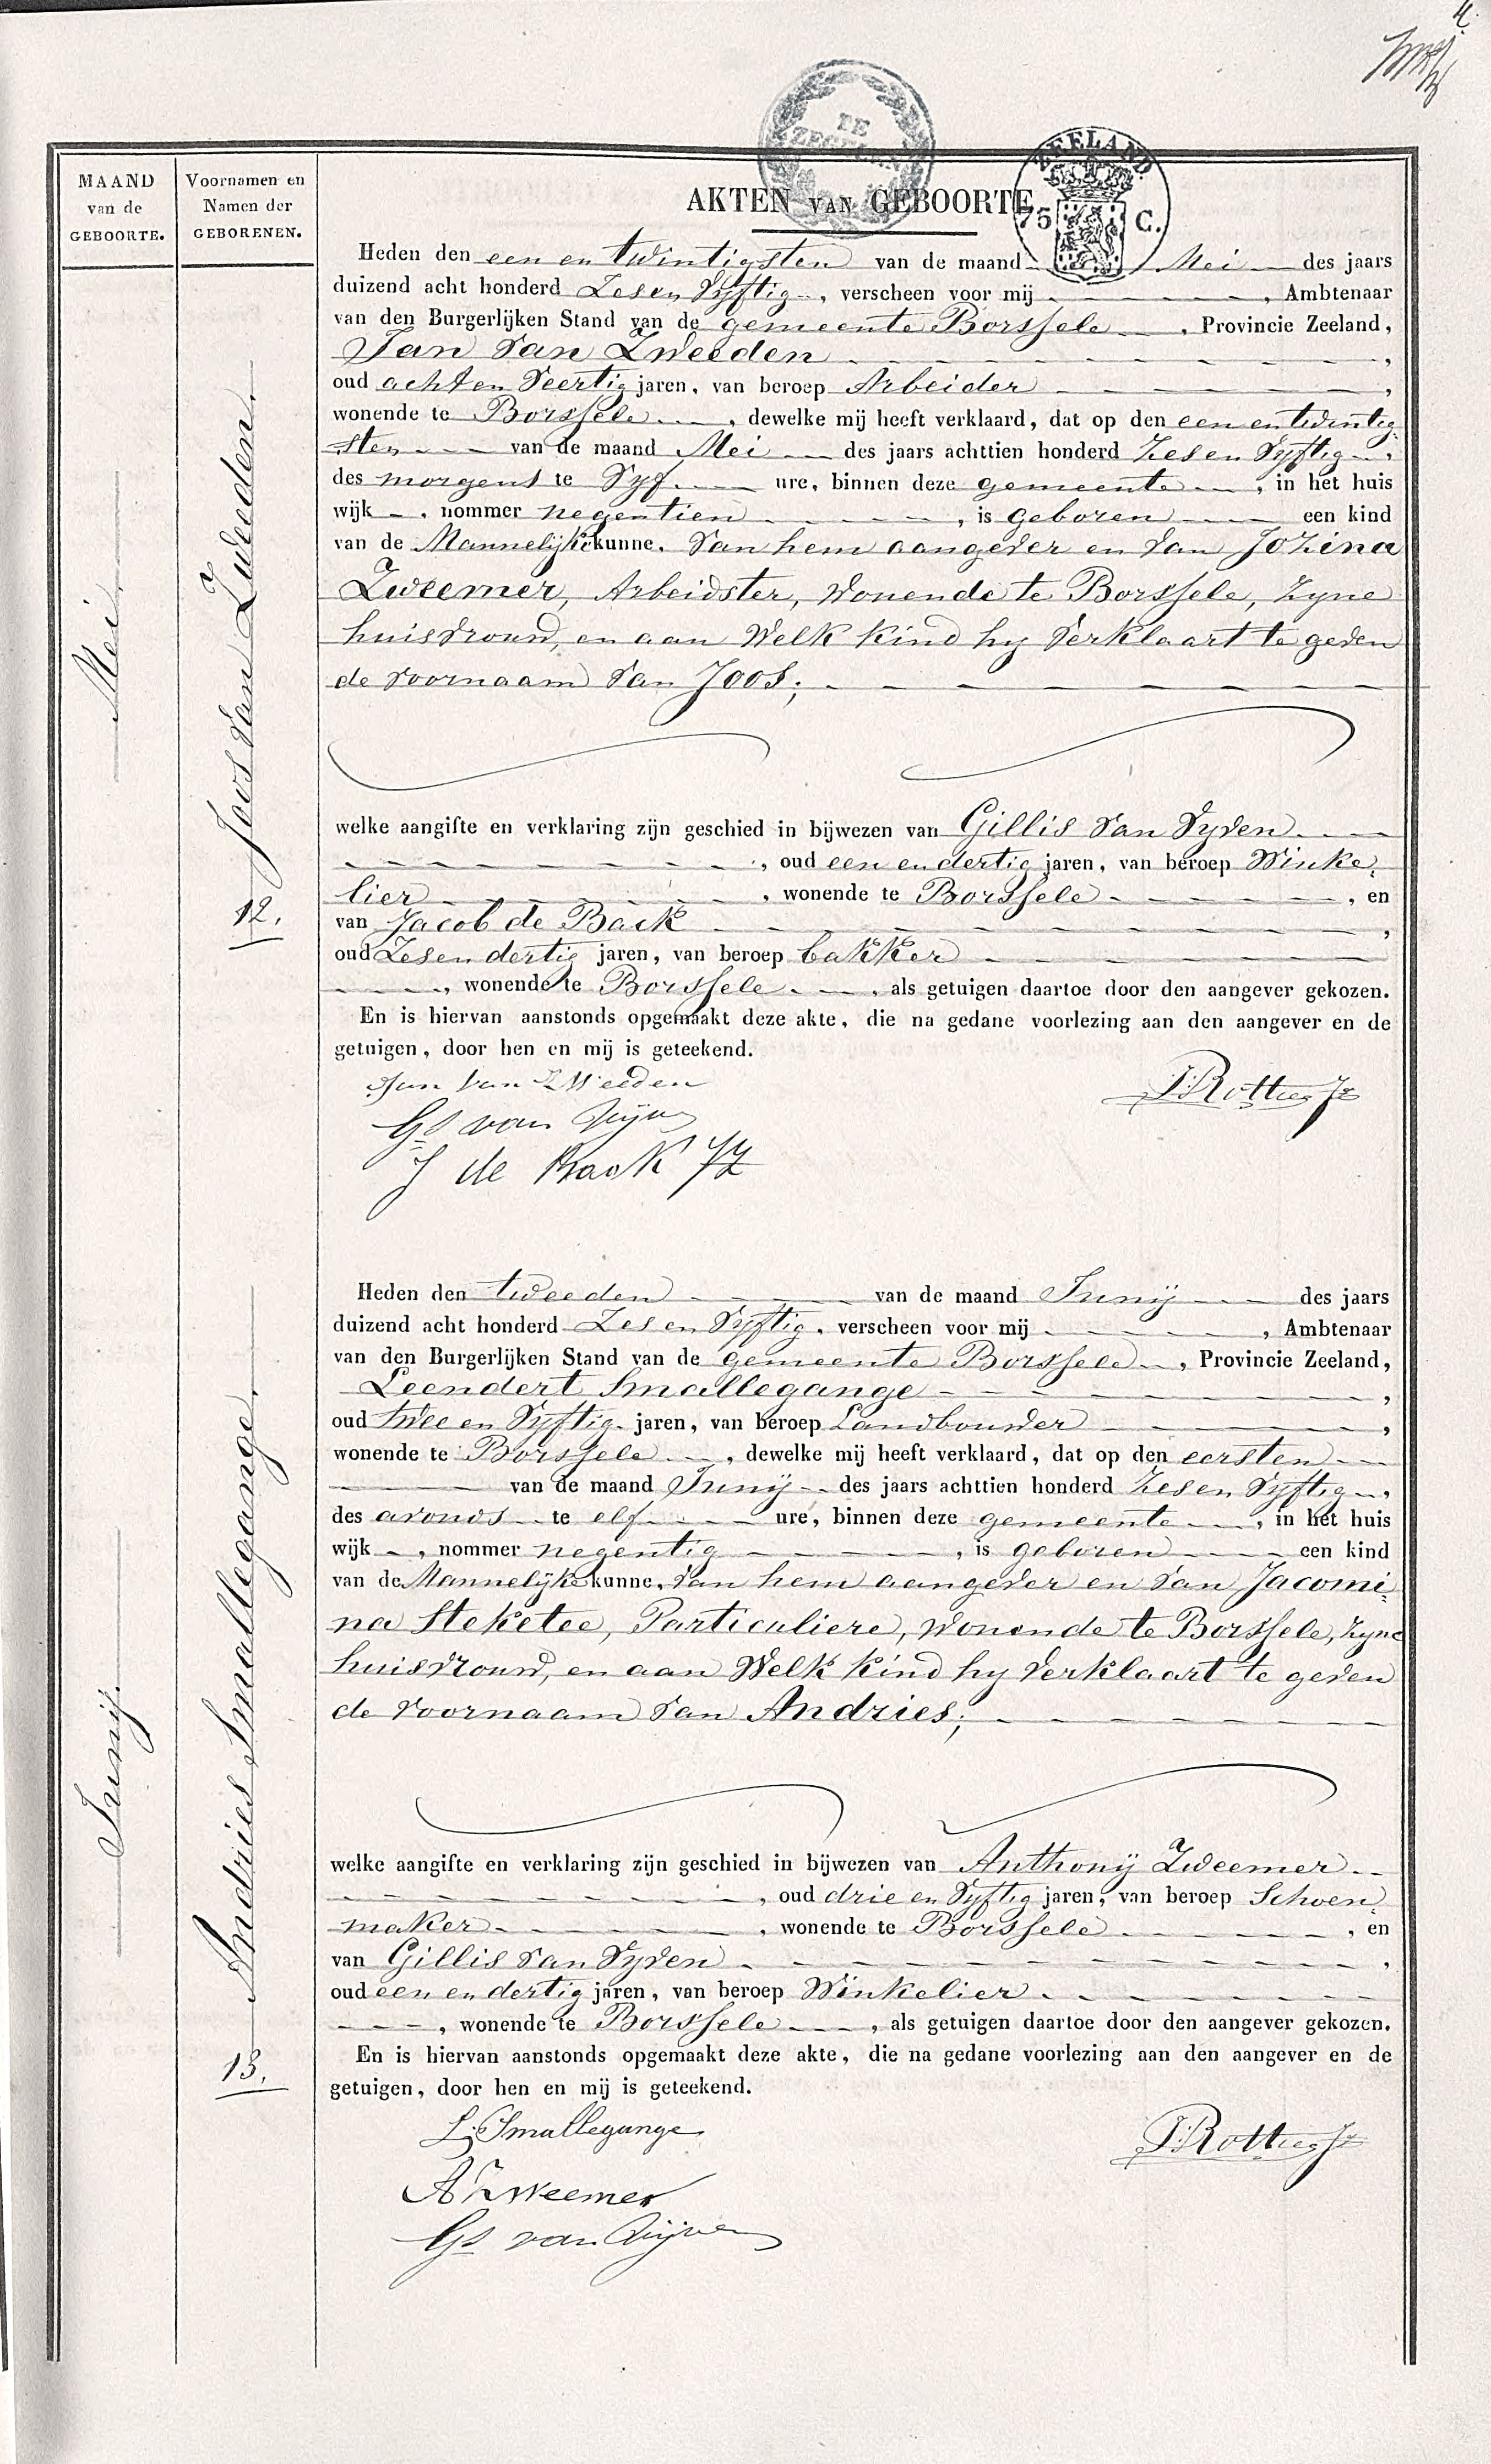 4.
TE
ZEGELEN
ZEELAND.
75 C.
MAAND
van de
GEBOORTE.
Voornamen en
Namen der
GEBORENEN.
AKTEN VAN GEBOORTE
Mei
Joos van Zweeden.
12.
Heden den een en twintigsten van de maand Mei des jaars
duizend acht honderd Zes en Vyftig, verscheen voor mij , Ambtenaar
van den Burgerlijken Stand van de gemeente Borssele , Provincie Zeeland,
Jan van Zweeden ,
oud acht en Veertig jaren, van beroep Arbeider ,
wonende te Borssele , dewelke mij heeft verklaard, dat op den een en twintig-
sten van de maand Mei des jaars achttien honderd Zes en Vyftig ,
des morgens te Vyf ure, binnen deze gemeente , in het huis
wijk , nommer negentien , is geboren een kind
van de Mannelijke kunne. Van hem aangever en van Jozina
Zweemer, Arbeidster, Wonende te Borssele, Zyne
huisvrouw, en aan Welk kind hy verklaart te geven
de voornaam van Joos;
welke aangifte en verklaring zijn geschied in bijwezen van Gillis van Vyven
, oud een en dertig jaren, van beroep Winke-
lier , wonende te Borssele , en
van Jacob de Back ,
oud Zes en dertig jaren, van beroep bakker
, wonende te Borssele , als getuigen daartoe door den aangever gekozen.
En is hiervan aanstonds opgemaakt deze akte, die na gedane voorlezing aan den aangever en de
getuigen, door hen en mij is geteekend.
Jan van Zweeden
Gs van Vijve
J de Back JZ
Junij.
Andries Smallegange.
13.
Heden den tweeden van de maand Junij des jaars
duizend acht honderd Zes en Vyftig, verscheen voor mij , Ambtenaar
van den Burgerlijken Stand van de gemeente Borssele , Provincie Zeeland,
Leendert Smallegange ,
oud twee en Vyftig jaren, van beroep Landbouwer ,
wonende te Borssele , dewelke mij heeft verklaard, dat op den eersten
van de maand Junij des jaars achttien honderd Zes en Vyftig ,
des avonds te elf ure, binnen deze gemeente , in het huis
wijk , nommer negentig , is geboren een kind
van de Mannelijke kunne, van hem aangever en van Jacomi-
na Steketee, Particuliere, Wonende te Borssele, Zyne
huisvrouw, en aan Welk kind hy verklaart te geven
de voornaam van Andries;
welke aangifte en verklaring zijn geschied in bijwezen van Anthonij Zweemer
, oud drie en Vyftig jaren, van beroep Schoen-
maker , wonende te Borssele , en
van Gillis van Vyven ,
oud een en dertig jaren, van beroep Winkelier
, wonende te Borssele , als getuigen daartoe door den aangever gekozen.
En is hiervan aanstonds opgemaakt deze akte, die na gedane voorlezing aan den aangever en de
getuigen, door hen en mij is geteekend.
L. Smallegange
A Zweemer
Gs van Vijve